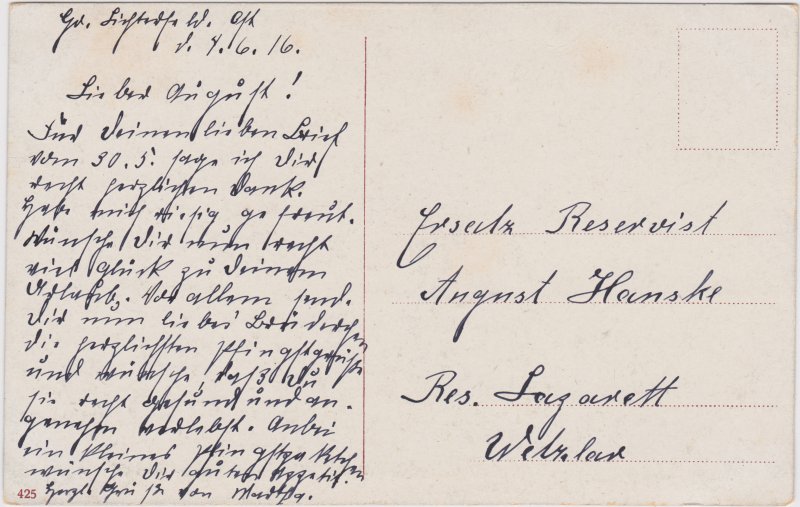 Gr. Lichterfelde. Ost
d. 4.6.16.
Lieber August!
Für deinen lieben Brief
vom 30.5. sage ich dir
recht herzlichen Dank.
Habe mich riesig gefreut.
Wünsche dir nun recht
viel Glück zu deinem
Urlaub. Vor allem send.
dir nun liebes Brüderchen
die herzlichsten Pfingstgrüße
und wünsche, daß du
sie recht gesund und an-
genehm verlebst. Anbei
ein kleines Pfingstpaketch
wünsche dir guten Appetit.
Herzl. Gruß von Martha.
425
Ersatz Reservist
August Hanske
Res. Lazarett
Wetzlar